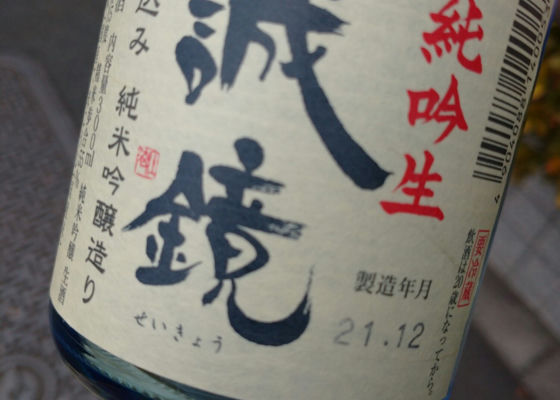 純吟生
誠鏡
せいきょう
込み 純米吟醸造り
内容量300ml
純米吟醸 生酒
製造年月
21.12
要冷蔵
飲酒は20歳になってから。